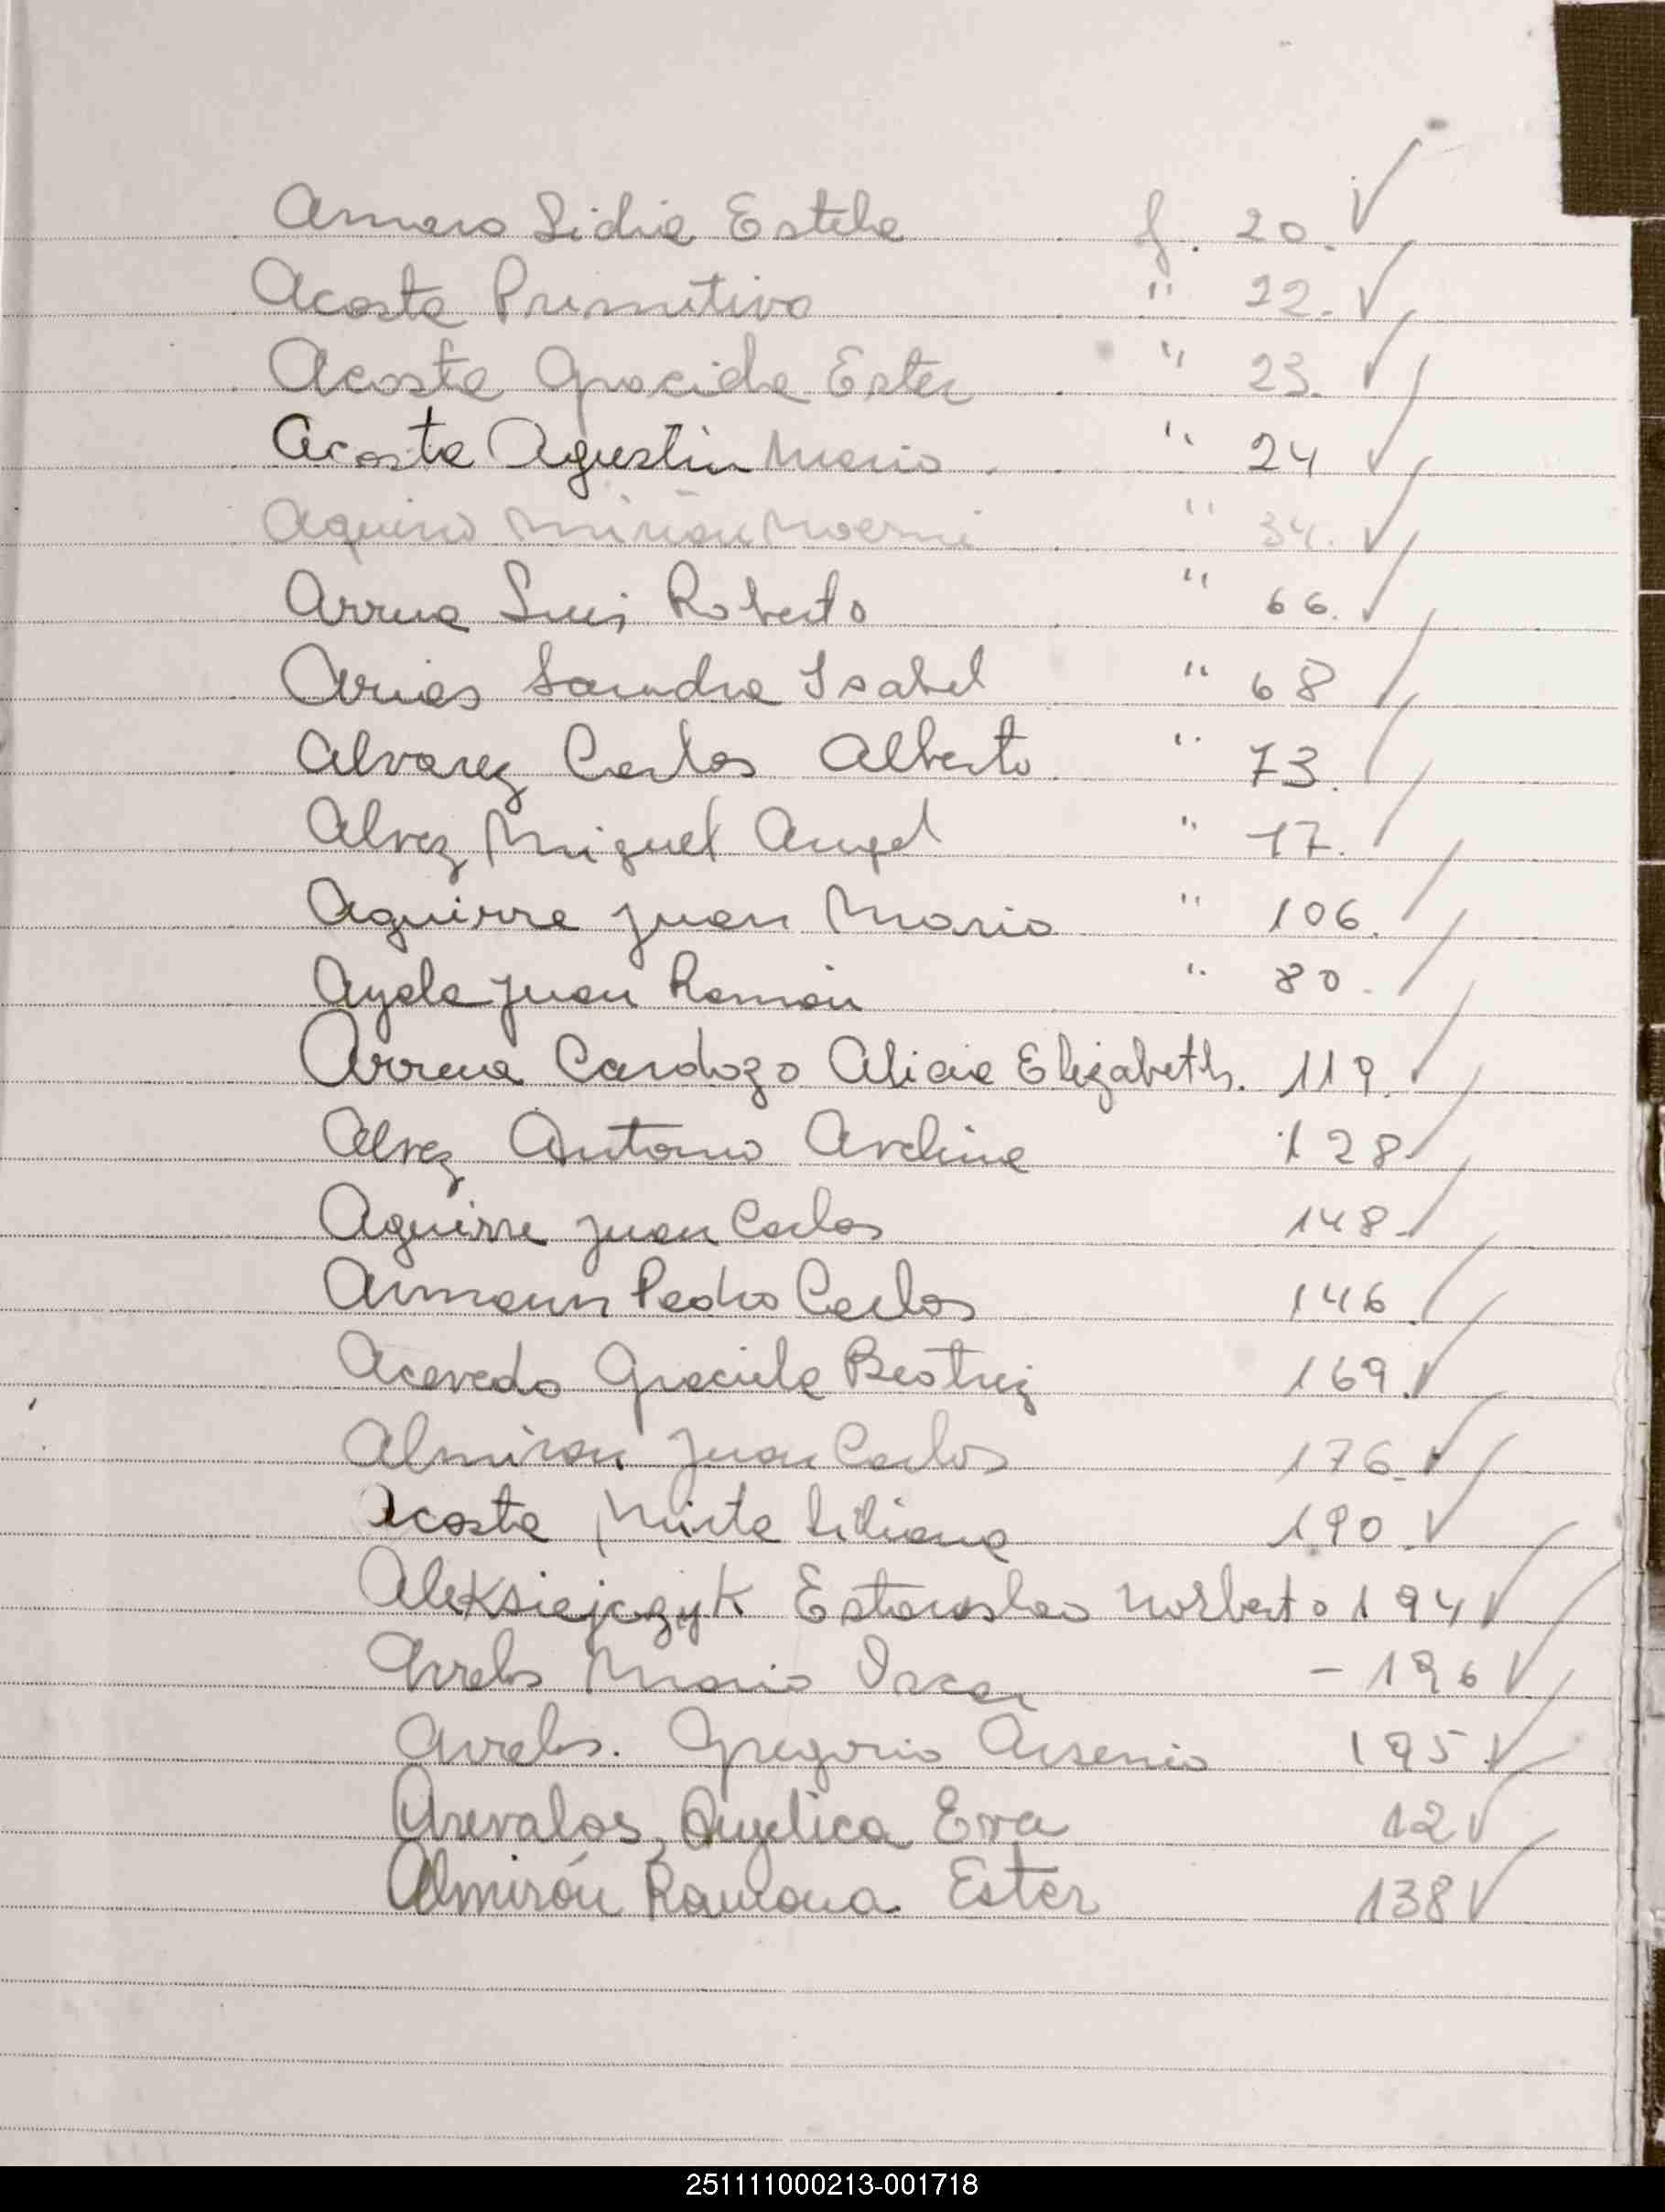 Amaro Lidia Estela f. 20. ✓
Acosta Primitivo " 22. ✓
Acosta Graciela Ester " 23. ✓
Acosta Agustin Mario " 24 ✓
Aquino Mirian Noemi " 34. ✓
Arrua Luis Roberto " 66. ✓
Arias Sandra Isabel " 68 ✓
Alvarez Carlos Alberto " 73. ✓
Alvez Miguel Angel " 17. ✓
Aguirre Juan Mario " 106. ✓
Ayala Juan Ramón " 80. ✓
Arrua Cardozo Alicia Elizabeth. 119. ✓
Alvez Antonio Avelina 128 ✓
Aguirre Juan Carlos 148 ✓
Aimann Pedro Carlos 146. ✓
Acevedo Graciela Beatriz 169. ✓
Almiron Juan Carlos 176. ✓
Acosta Mirta Liliana 190. ✓
Aleksiejczyk Estanislao Norberto 194 ✓
Mario Oscar - 196 ✓
Gregorio Arsenio 195 ✓
Arevalos, Angelica Eva 12 ✓
Almirón Ramona Ester 138 ✓
251111000213-001718